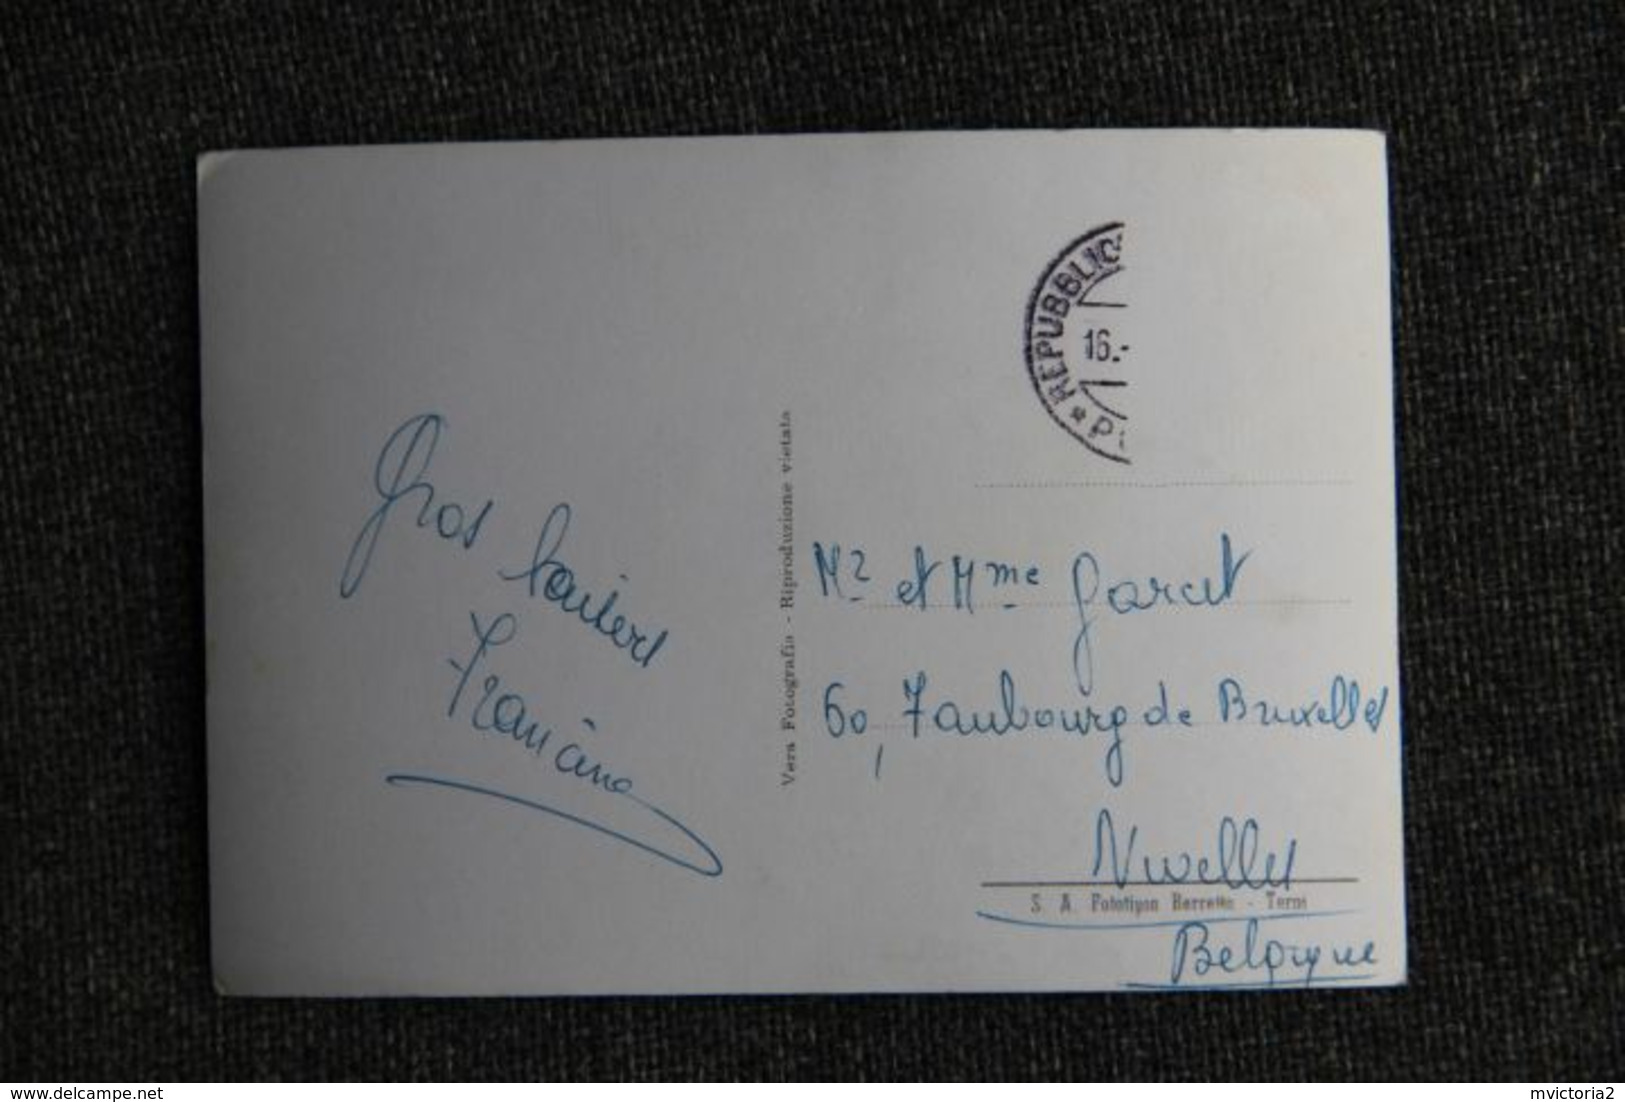 REPUBBLIC
16.-
* P
Gros baisers
Francine
Vera Fotografia - Riproduzione vietata
Mr et Mme Garcet
60, Faubourg de Bruxelles
Nivelles
S. A. Fototipia Berretta - Terni
Belgique
delcampe.net
mvictoria2